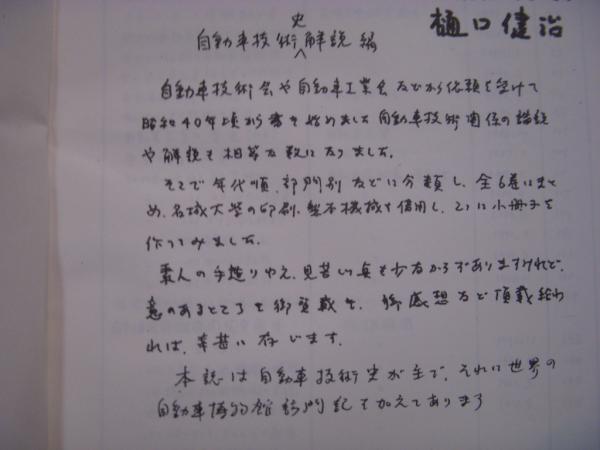 樋口健治
自動車技術史解説編
自動車技術会や自動車工業会などから依頼を受けて
昭和40年頃から書き始めました自動車技術関係の論説
や解説も相等な数になりました。
そこで年代順、部門別などに分類し、全6巻にまと
め、名城大学の印刷、製本機械を借用し、ここに小冊子を
作ってみました。
素人の手造りゆえ、見苦しい点も少なからずありますけれど、
意のあるところを御賢載を、御感想など頂戴給わ
れば、幸甚に存じます。
本誌は自動車技術史が主で、それに世界の
自動車博物館訪門記を加えてあります